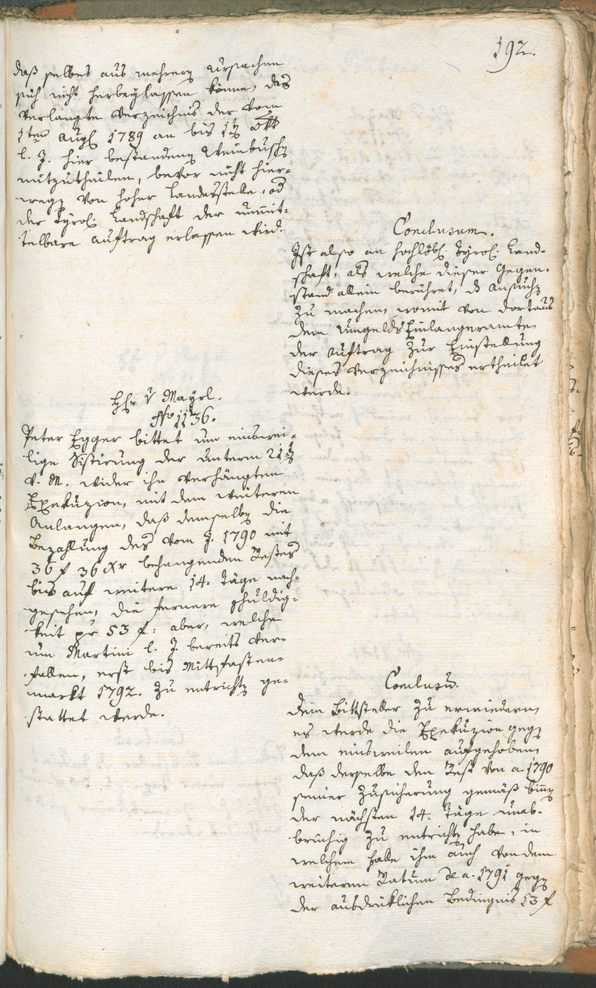 192.
daß selbes aus mehrern Ursachen
sich nicht herbeylassen könne, das
verlangte Verzeichnis der vom
1ten Augl 1789 an bis
l. J. hier bestandenen
mitzutheilen, bevor nicht hier-
wegen von hoher Landesstelle, od
der Tyrol. Landschaft der unmit-
telbare Auftrag erlassen wird.
Conclusum.
Ist also an hochlöbl. Tyrol. Land-
schaft, als welche dieser Gegen-
stand allein berühret, d Ansuch
zu machen, womit von dortaus
dem Umgelds Einlangeramte
der Auftrag zur Einstellung
dieses Verzeichnisses ertheilet
werde.
Hr. v Mayrl.
No 1136.
Peter Egger bittet um einswei-
lige Sistirung der unterm 21
v. M. wider ihn verhängten
Exekuzion, mit dem weiteren
Anlangen, daß demselben die
Bezahlung des vom J. 1790 mit
36 f 36 xr behangenden Restes
bis auf weitere 14. Täge nach-
gesehen, die fernere Schuldig-
keit pr 53 f: aber, welche
um Martini l. J. bereits ver-
fallen, erst bis Mittfasten-
markt 1792. zu entrichten ge-
stattet werde.
Conclusum.
Dem Bittsteller zu erwiedern
es werde die Exekuzion gegen
dem einsweilen aufgehoben,
daß derselbe den Rest von a. 1790
seiner Zusicherung gemäß binen
der nächsten 14. Täge unab-
brüchig zu entrichten habe, in
welchem falle ihm auch von dem
weiterem Datum de a. 1791 gegen
der ausdrücklichen Bedingnis 53 f